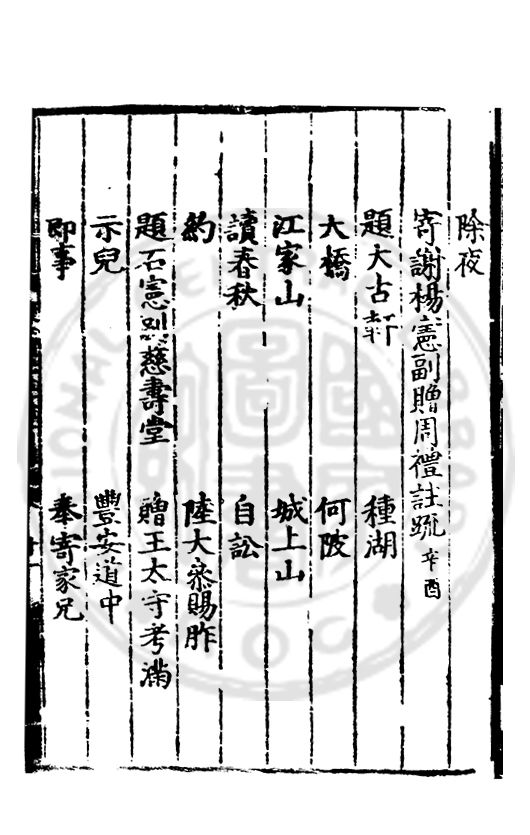 除夜
寄謝楊憲副贈周禮註疏 辛酉
題大古軒 種湖
大橋 何陂
江家山 城上山
讀春秋 自訟
約 陸大參賜胙
題石憲副慈壽堂 贈王太守考滿
示兒 豐安道中
即事 奉寄家兄